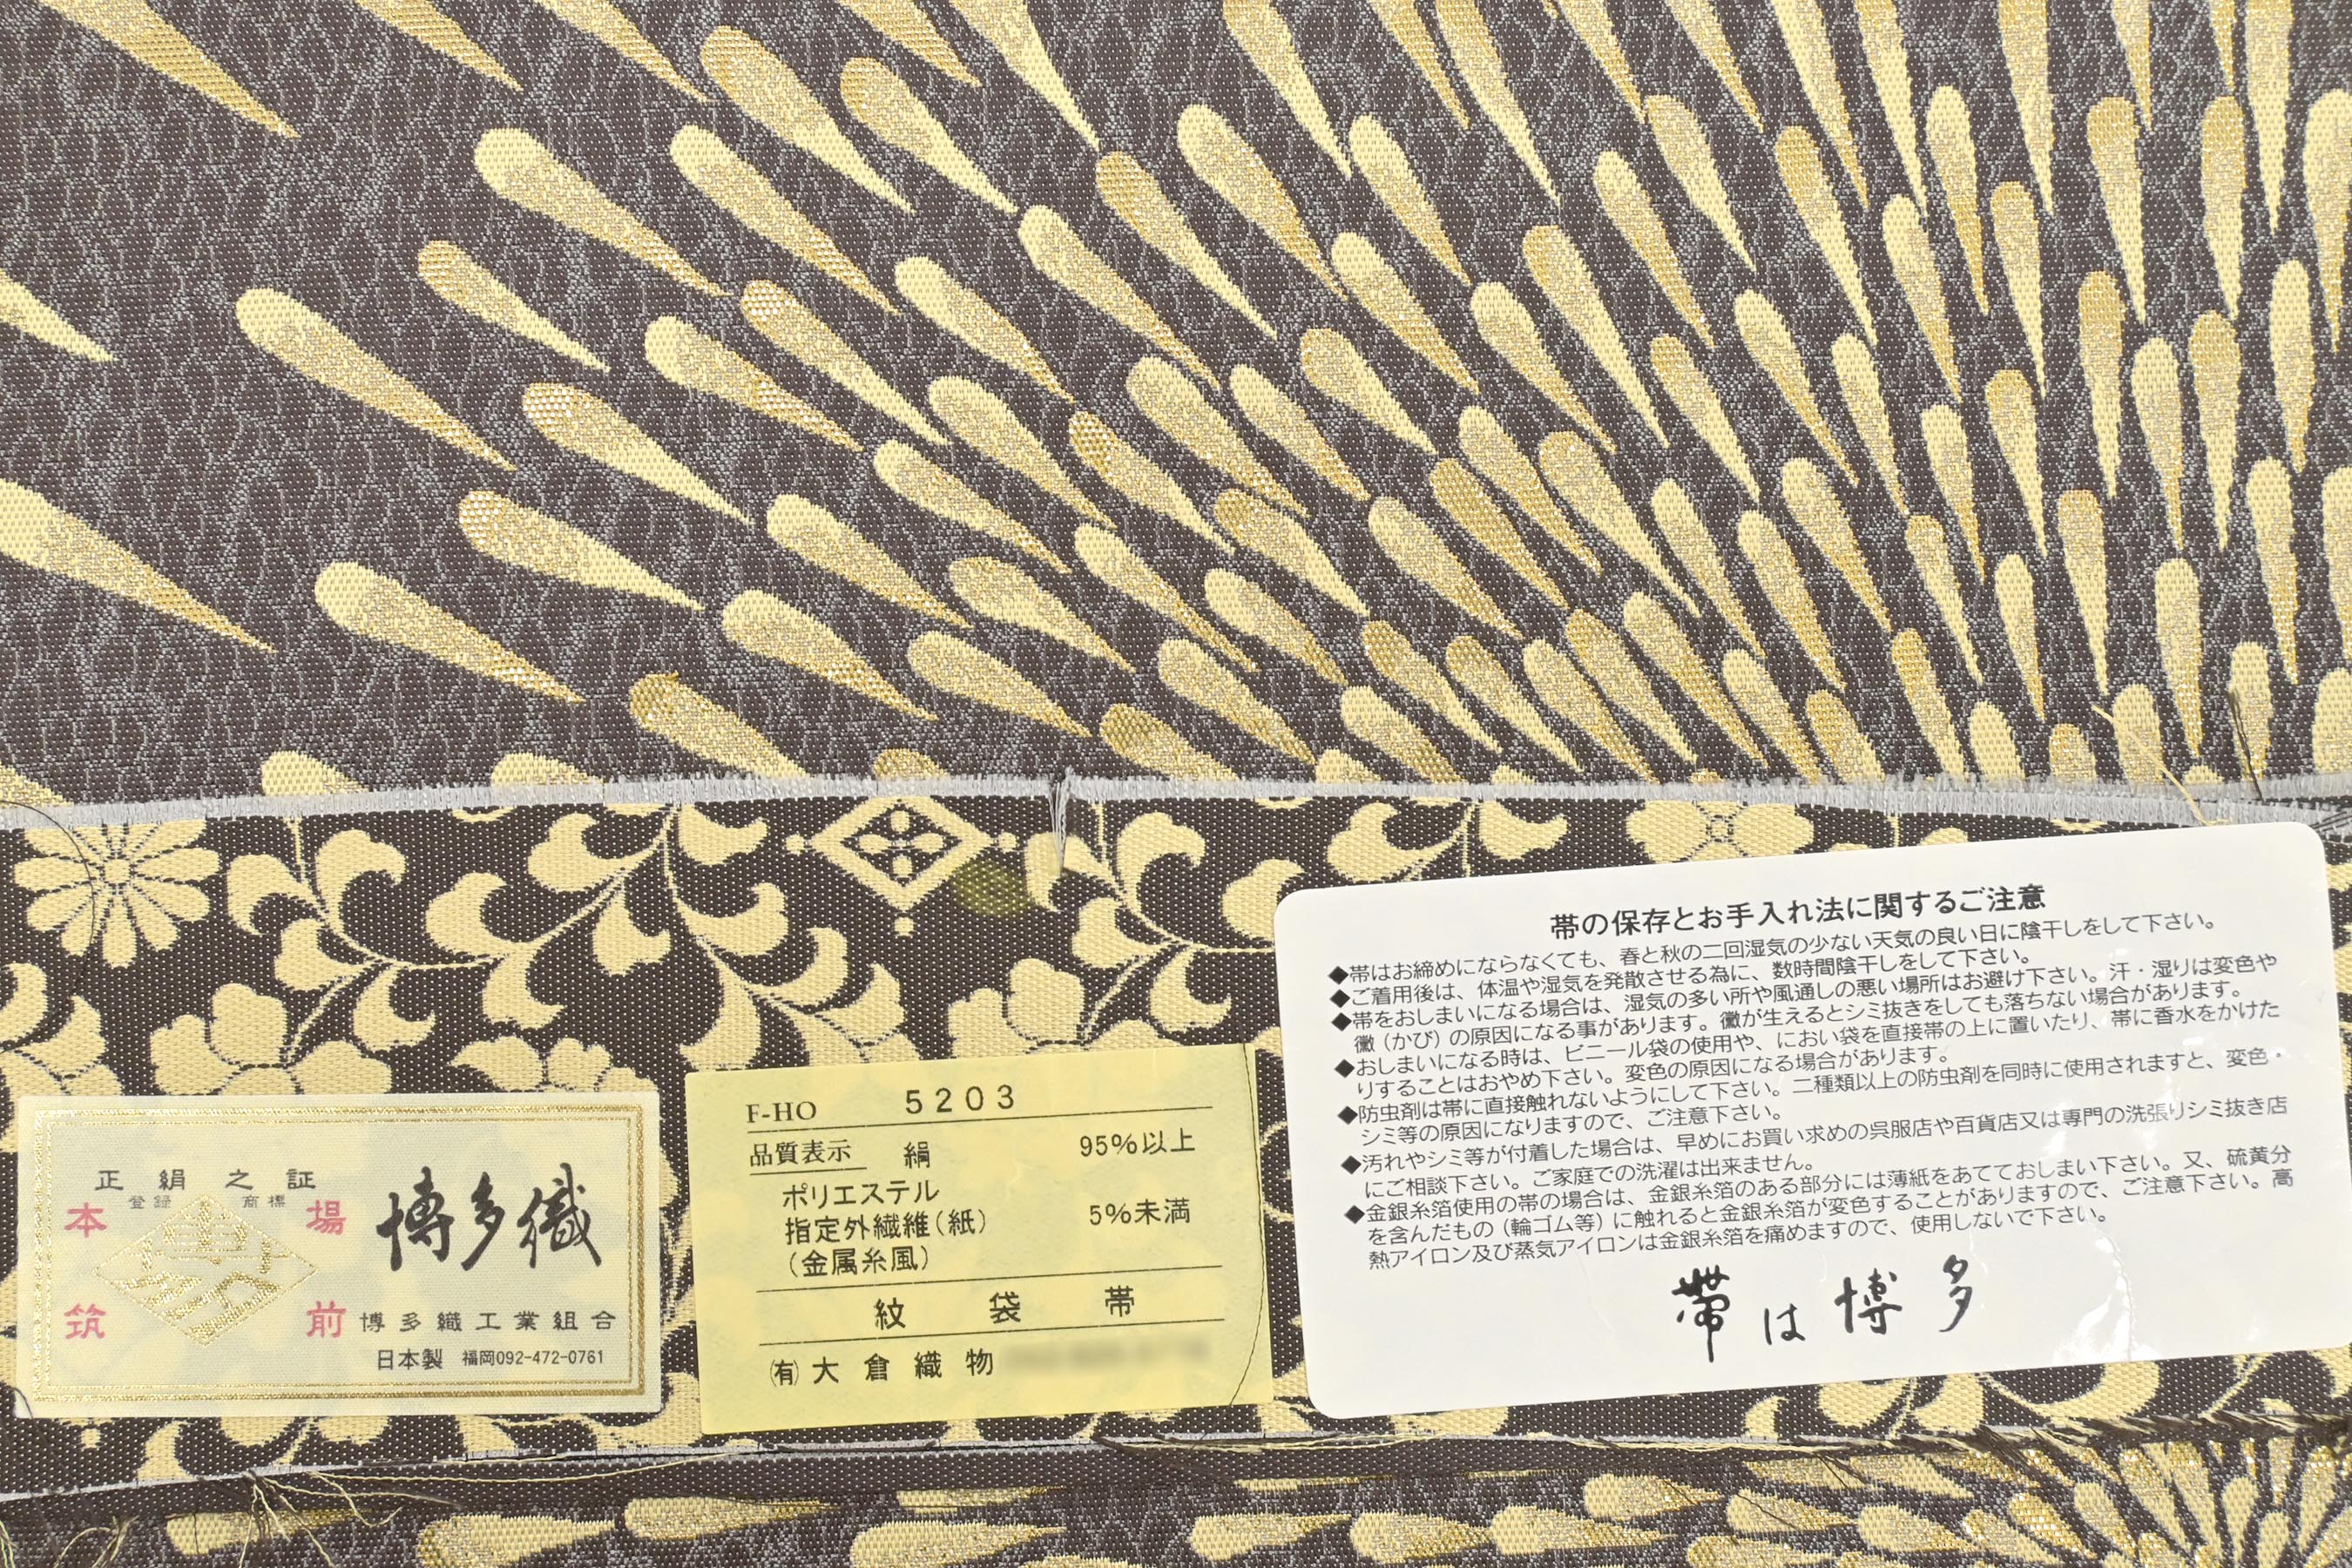 正絹之証
登録商標
本場
筑前
博多
博多織
博多織工業組合
日本製 福岡092-472-0761
F-HO 5203
品質表示 絹 95%以上
ポリエステル
指定外繊維(紙) 5%未満
(金属糸風)
紋袋帯
㈲大倉織物
帯の保存とお手入れ法に関するご注意
◆帯はお締めにならなくても、春と秋の二回湿気の少ない天気の良い日に陰干しをして下さい。
◆ご着用後は、体温や湿気を発散させる為に、数時間陰干しをして下さい。
◆帯をおしまいになる場合は、湿気の多い所や風通しの悪い場所はお避け下さい。汗・湿りは変色や
黴(かび)の原因になる事があります。黴が生えるとシミ抜きをしても落ちない場合があります。
◆おしまいになる時は、ビニール袋の使用や、におい袋を直接帯の上に置いたり、帯に香水をかけた
りすることはおやめ下さい。変色の原因になる場合があります。
◆防虫剤は帯に直接触れないようにして下さい。二種類以上の防虫剤を同時に使用されますと、変色・
シミ等の原因になりますので、ご注意下さい。
◆汚れやシミ等が付着した場合は、早めにお買い求めの呉服店や百貨店又は専門の洗張りシミ抜き店
にご相談下さい。ご家庭での洗濯は出来ません。
◆金銀糸箔使用の帯の場合は、金銀糸箔のある部分には薄紙をあてておしまい下さい。又、硫黄分
を含んだもの(輪ゴム等)に触れると金銀糸箔が変色することがありますので、ご注意下さい。高
熱アイロン及び蒸気アイロンは金銀糸箔を痛めますので、使用しないで下さい。
帯は博多